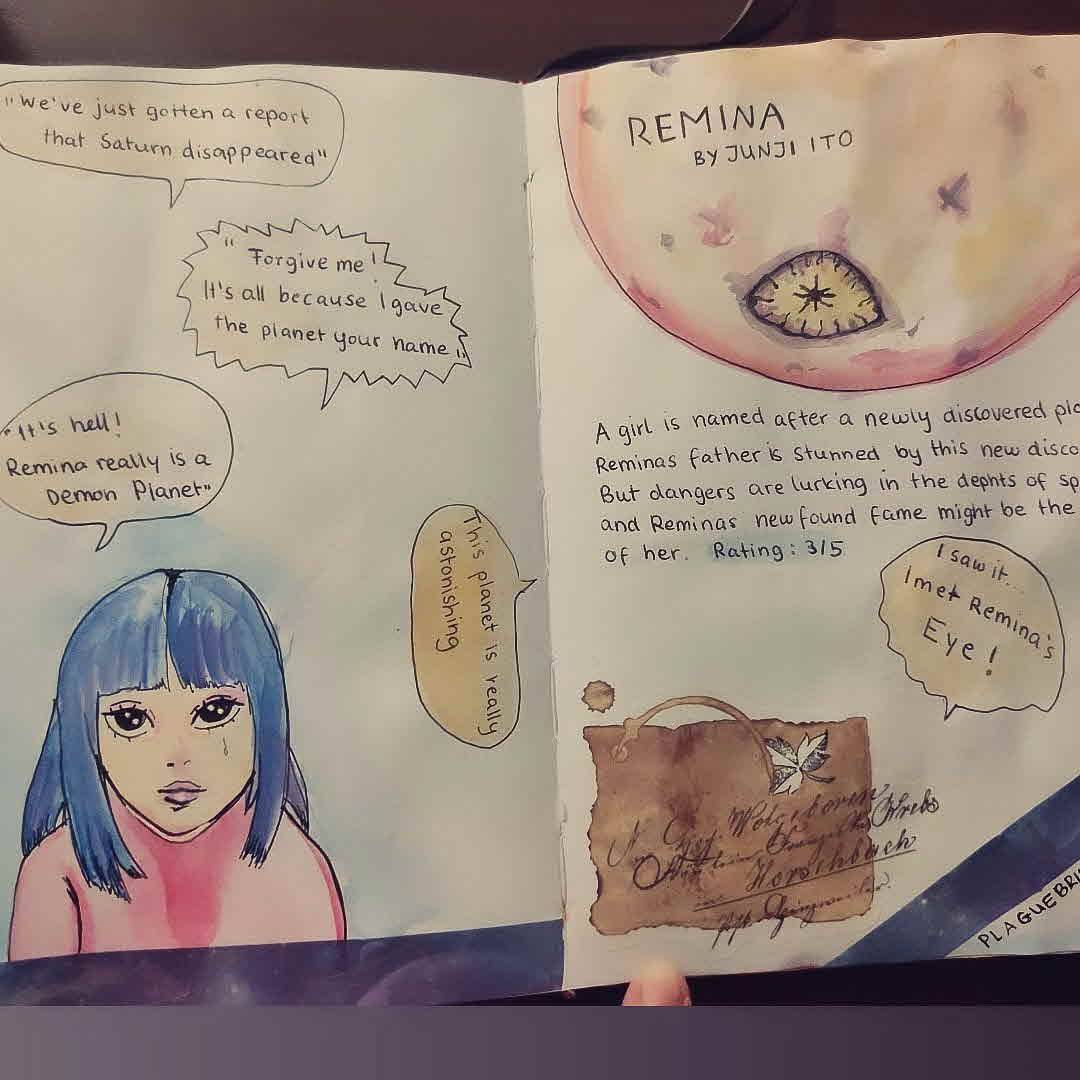 "We've just gotten a report
that Saturn disappeared"
"Forgive me!
It's all because I gave
the planet your name"
"It's hell!
Remina really is a
Demon Planet"
This planet is really
astonishing
REMINA
BY JUNJI ITO
A girl is named after a newly discovered
Reminas father is stunned by this new
But dangers are lurking in the dephts of
and Reminas newfound fame might be the
of her. Rating: 3/5
I saw it...
I met Remina's
Eye!
Horschbach